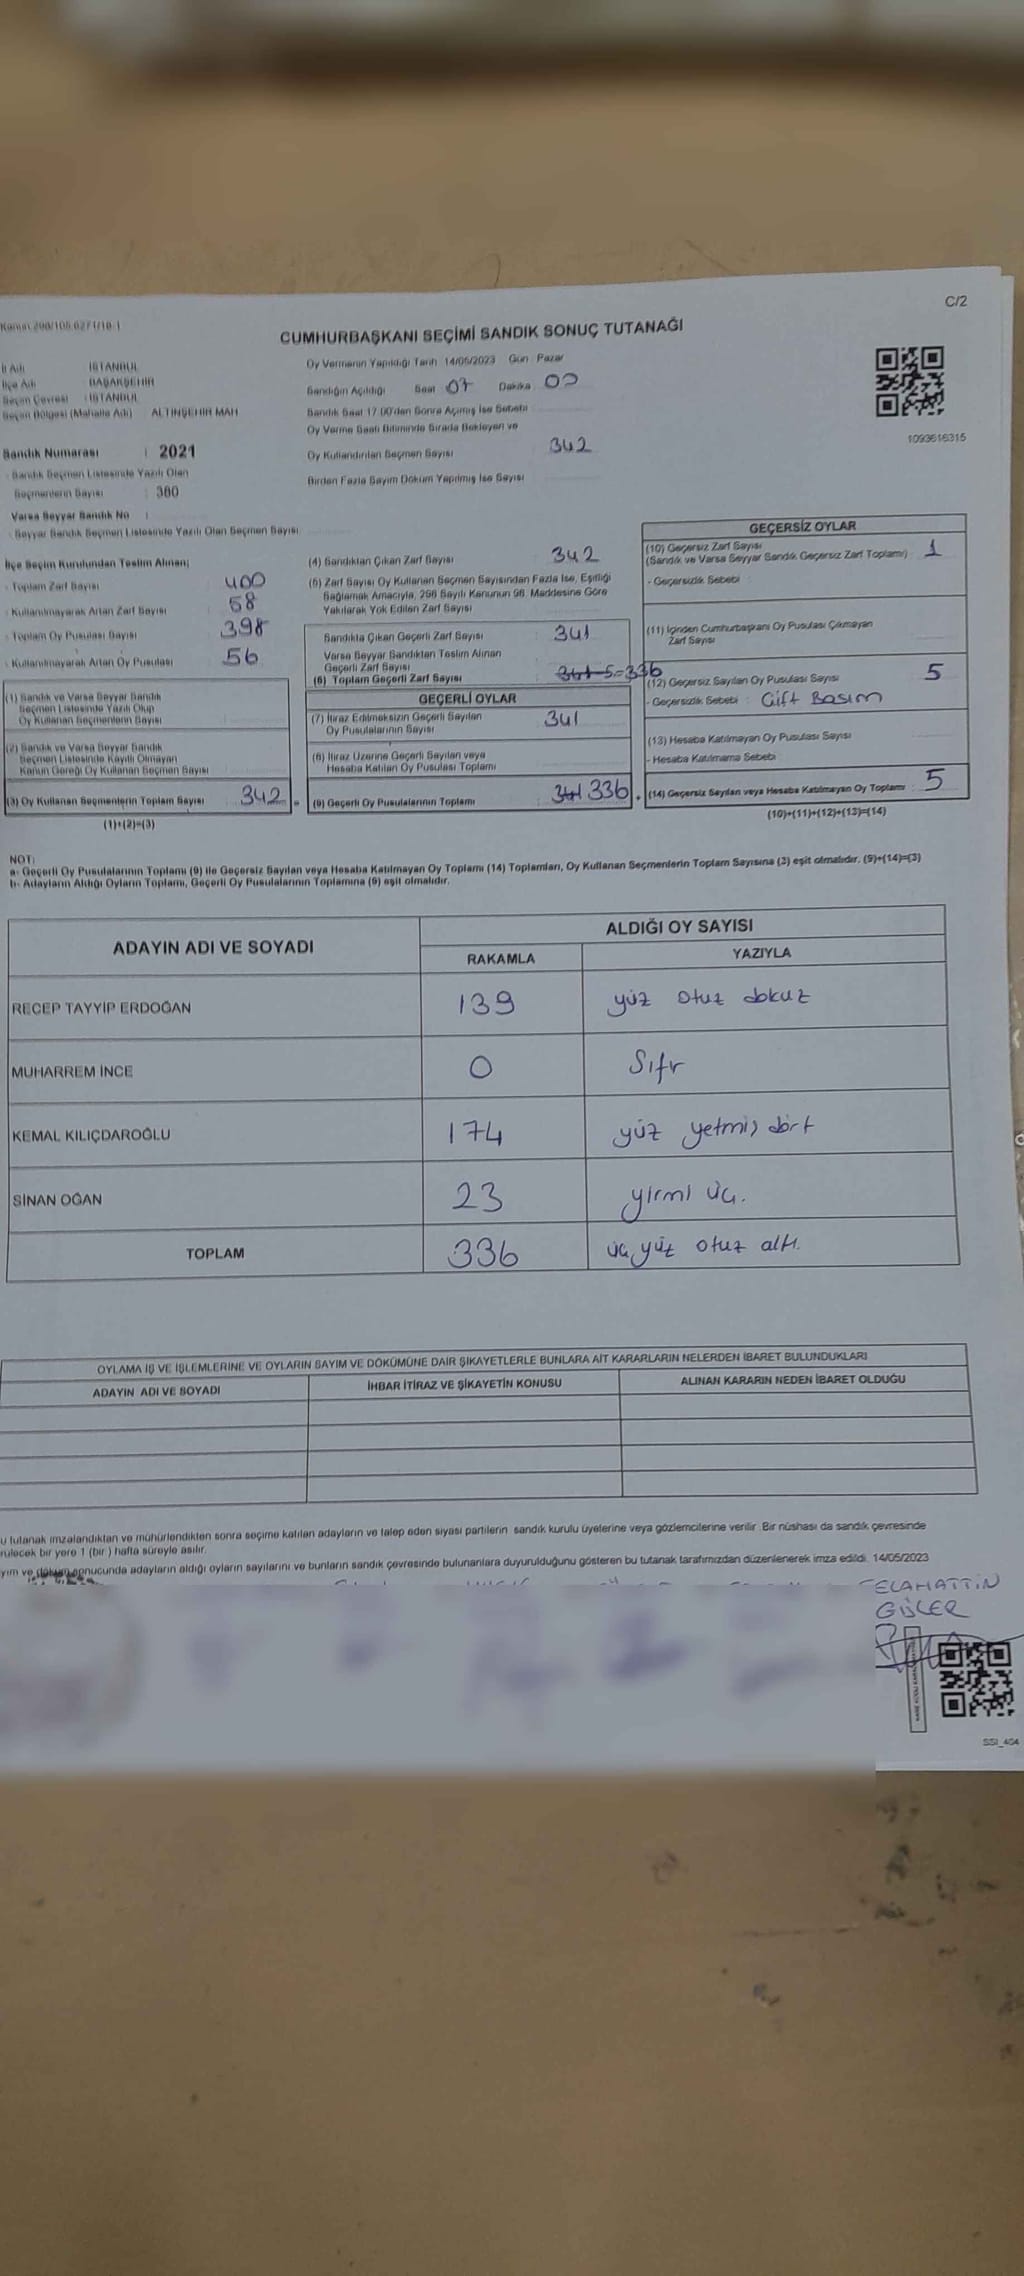 Kanun 298/105.6271/18-1
C/2
CUMHURBAŞKANI SEÇİMİ SANDIK SONUÇ TUTANAĞI
İl Adı : İSTANBUL
İlçe Adı : BAŞAKŞEHİR
Seçim Çevresi : İSTANBUL
Seçim Bölgesi (Mahalle Adı) ALTINŞEHİR MAH
Sandık Numarası : 2021
- Sandık Seçmen Listesinde Yazılı Olan
Seçmenlerin Sayısı : 380
Varsa Seyyar Sandık No :
- Seyyar Sandık Seçmen Listesinde Yazılı Olan Seçmen Sayısı
Oy Vermenin Yapıldığı Tarih 14/05/2023 Gün Pazar
Sandığın Açıldığı Saat 07 Dakika 00
Sandık Saat 17.00'den Sonra Açılmış İse Sebebi
Oy Verme Saati Bitiminde Sırada Bekleyen ve
Oy Kullandırılan Seçmen Sayısı 342
Birden Fazla Sayım Döküm Yapılmış İse Sayısı
1093616315
İlçe Seçim Kurulundan Teslim Alınan;
- Toplam Zarf Sayısı : 400
- Kullanılmayarak Artan Zarf Sayısı : 58
- Toplam Oy Pusulası Sayısı : 398
- Kullanılmayarak Artan Oy Pusulası : 56
(1) Sandık ve Varsa Seyyar Sandık
Seçmen Listesinde Yazılı Olup
Oy Kullanan Seçmenlerin Sayısı
(2) Sandık ve Varsa Seyyar Sandık
Seçmen Listesinde Kayıtlı Olmayan
Kanun Gereği Oy Kullanan Seçmen Sayısı
(3) Oy Kullanan Seçmenlerin Toplam Sayısı 342
(1)+(2)=(3)
(4) Sandıktan Çıkan Zarf Sayısı 342
(5) Zarf Sayısı Oy Kullanan Seçmen Sayısından Fazla İse, Eşitliği
Sağlamak Amacıyla, 298 Sayılı Kanunun 98. Maddesine Göre
Yakılarak Yok Edilen Zarf Sayısı
Sandıkta Çıkan Geçerli Zarf Sayısı 341
Varsa Seyyar Sandıktan Teslim Alınan
Geçerli Zarf Sayısı
(6) Toplam Geçerli Zarf Sayısı 341-5=336
GEÇERLİ OYLAR
(7) İtiraz Edilmeksizin Geçerli Sayılan
Oy Pusulalarının Sayısı 341
(8) İtiraz Üzerine Geçerli Sayılan veya
Hesaba Katılan Oy Pusulası Toplamı
(9) Geçerli Oy Pusulalarının Toplamı 341 336
GEÇERSİZ OYLAR
(10) Geçersiz Zarf Sayısı
(Sandık ve Varsa Seyyar Sandık Geçersiz Zarf Toplamı) : 1
- Geçersizlik Sebebi :
(11) İçinden Cumhurbaşkanı Oy Pusulası Çıkmayan
Zarf Sayısı
(12) Geçersiz Sayılan Oy Pusulası Sayısı 5
- Geçersizlik Sebebi : Çift Basım
(13) Hesaba Katılmayan Oy Pusulası Sayısı
- Hesaba Katılmama Sebebi
(14) Geçersiz Sayılan veya Hesaba Katılmayan Oy Toplamı : 5
(10)+(11)+(12)+(13)=(14)
NOT:
a- Geçerli Oy Pusulalarının Toplamı (9) ile Geçersiz Sayılan veya Hesaba Katılmayan Oy Toplamı (14) Toplamları, Oy Kullanan Seçmenlerin Toplam Sayısına (3) eşit olmalıdır. (9)+(14)=(3)
b- Adayların Aldığı Oyların Toplamı, Geçerli Oy Pusulalarının Toplamına (9) eşit olmalıdır.
ADAYIN ADI VE SOYADI
ALDIĞI OY SAYISI
RAKAMLA YAZIYLA
RECEP TAYYİP ERDOĞAN 139 yüz otuz dokuz
MUHARREM İNCE 0 Sıfr
KEMAL KILIÇDAROĞLU 174 yüz yetmiş dört
SİNAN OĞAN 23 yirmi üç.
TOPLAM 336 üç yüz otuz altı.
OYLAMA İŞ VE İŞLEMLERİNE VE OYLARIN SAYIM VE DÖKÜMÜNE DAİR ŞİKAYETLERLE BUNLARA AİT KARARLARIN NELERDEN İBARET BULUNDUKLARI
ADAYIN ADI VE SOYADI İHBAR İTİRAZ VE ŞİKAYETİN KONUSU ALINAN KARARIN NEDEN İBARET OLDUĞU
u tutanak imzalandıktan ve mühürlendikten sonra seçime katılan adayların ve talep eden siyasi partilerin sandık kurulu üyelerine veya gözlemcilerine verilir. Bir nüshası da sandık çevresinde
rülecek bir yere 1 (bir) hafta süreyle asılır.
yım ve döküm sonucunda adayların aldığı oyların sayılarını ve bunların sandık çevresinde bulunanlara duyurulduğunu gösteren bu tutanak tarafımızdan düzenlenerek imza edildi. 14/05/2023
SELAHATTİN
GÜLER
SSI_404